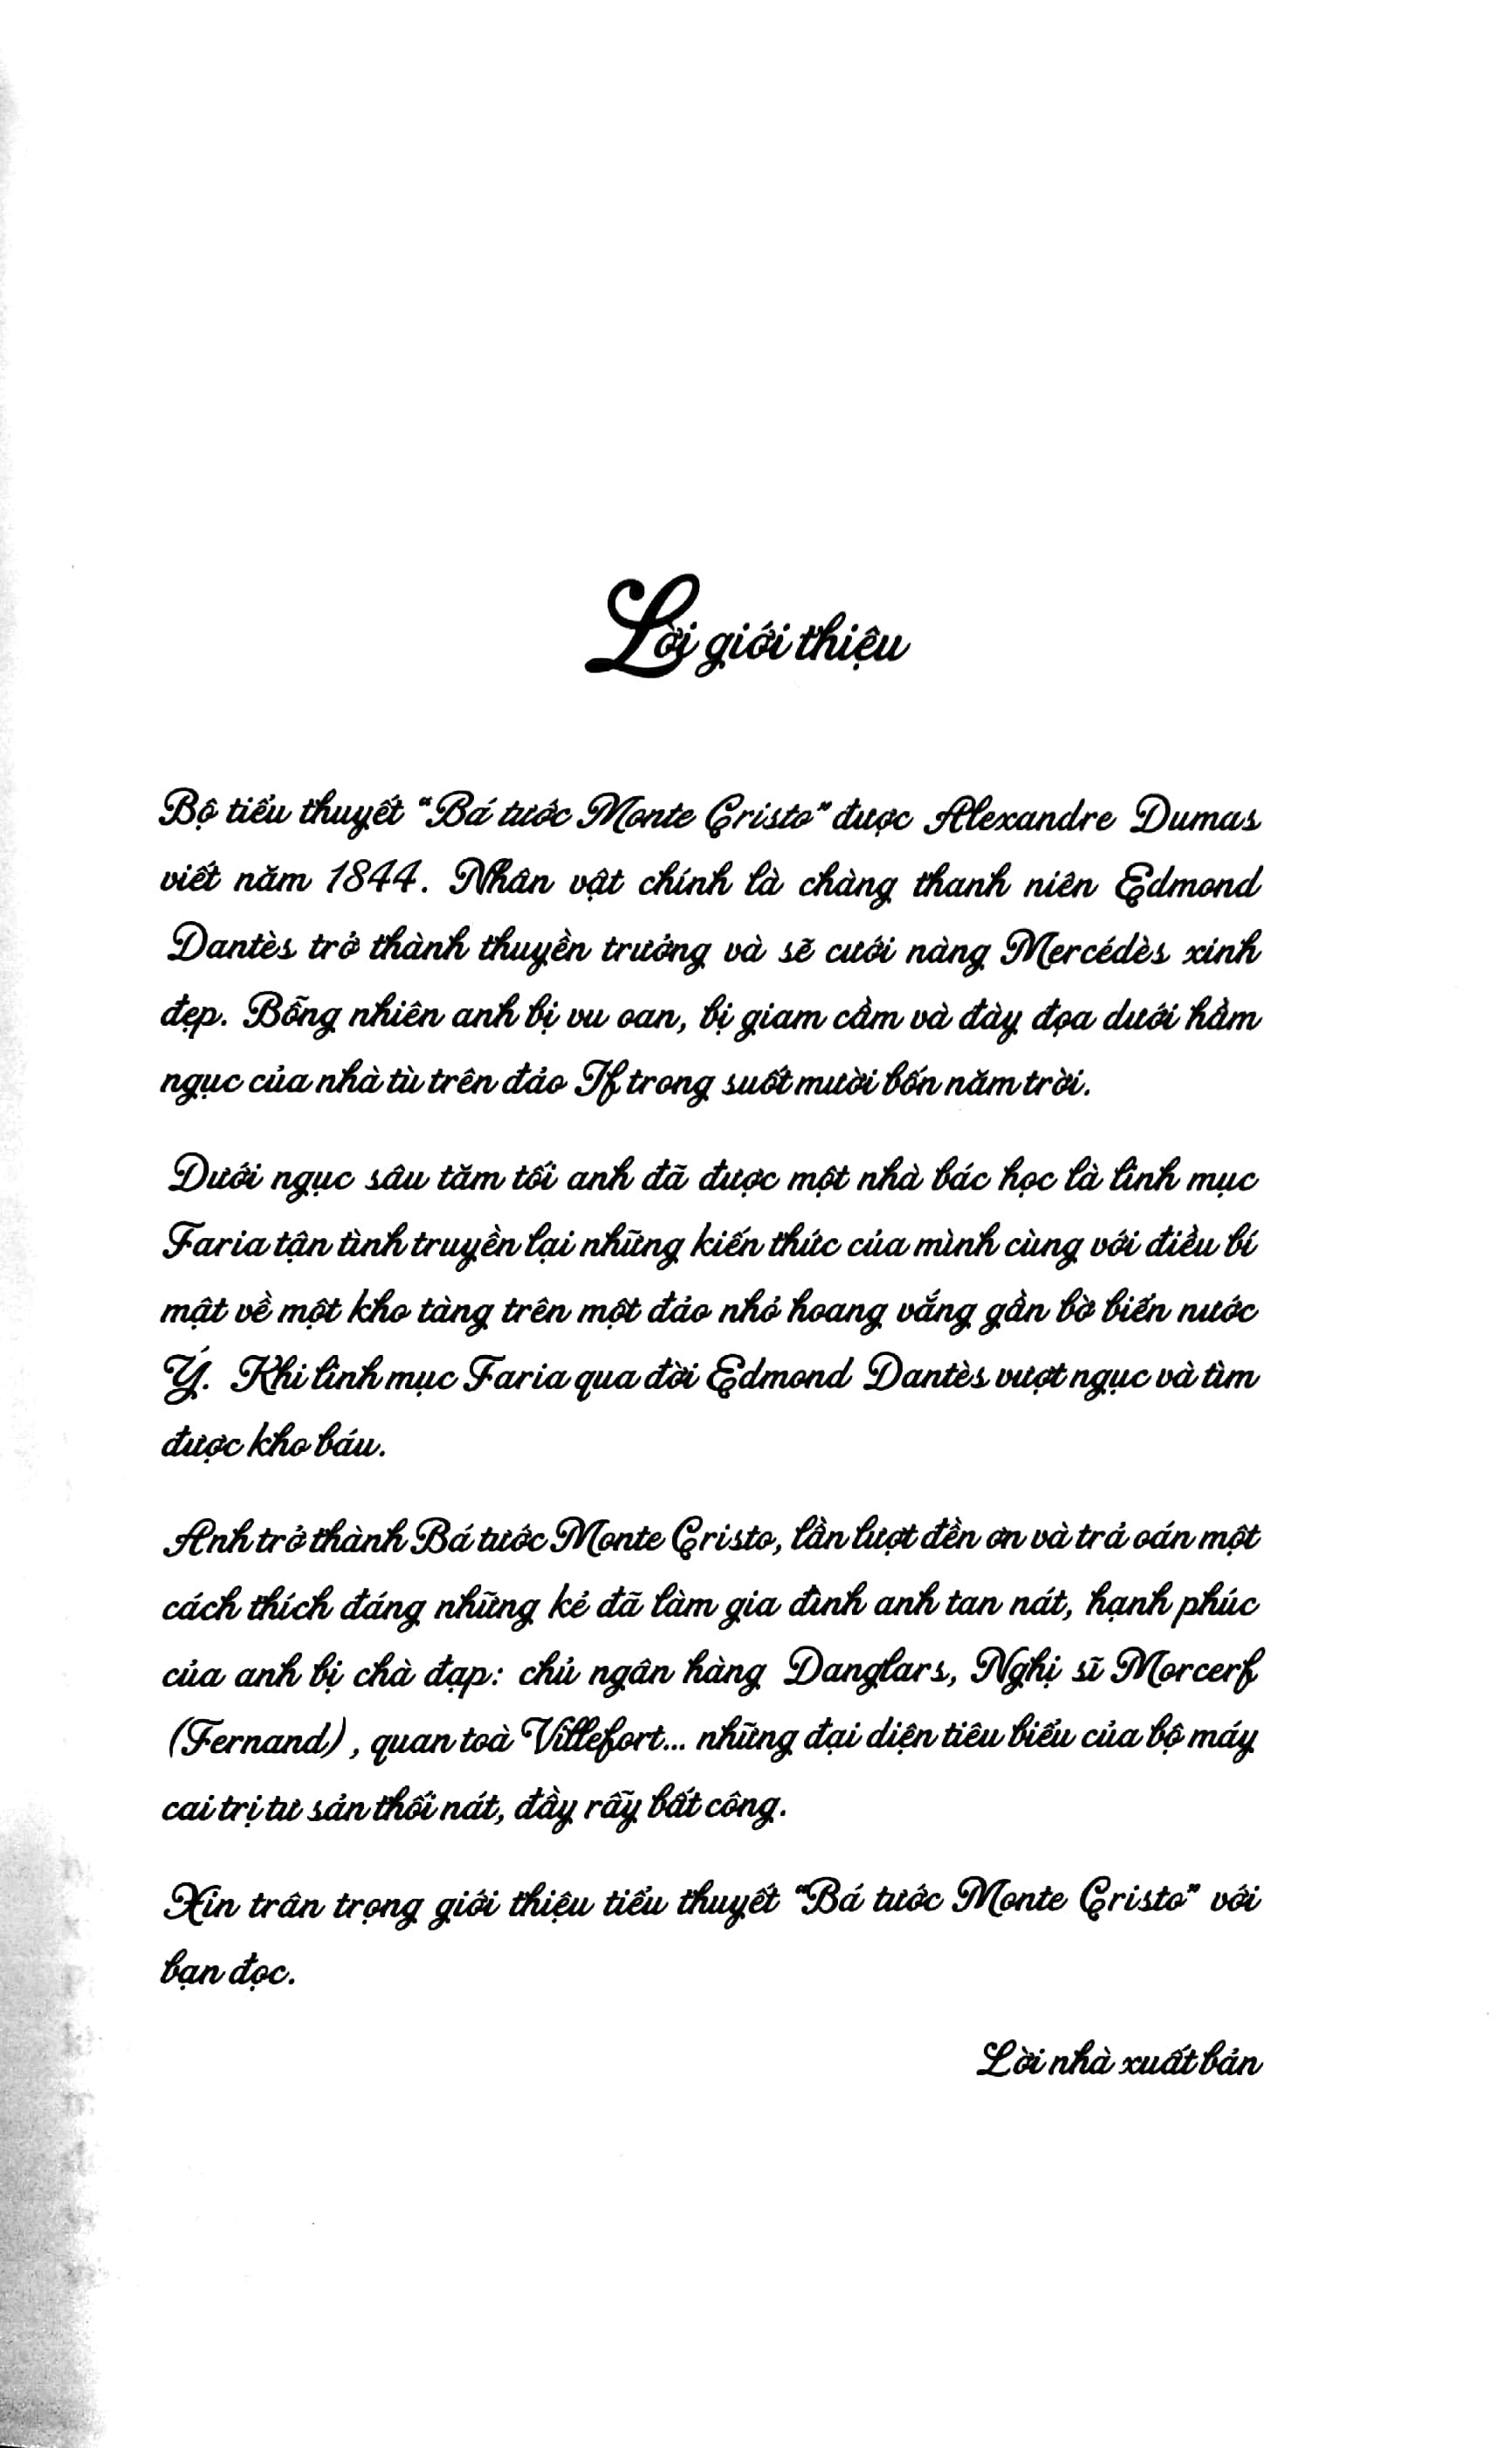 Lời giới thiệu
Bộ tiểu thuyết “Bá tước Monte Cristo” được Alexandre Dumas
viết năm 1844. Nhân vật chính là chàng thanh niên Edmond
Dantès trở thành thuyền trưởng và sẽ cưới nàng Mercédès xinh
đẹp. Bỗng nhiên anh bị vu oan, bị giam cầm và đày đọa dưới hầm
ngục của nhà tù trên đảo If trong suốt mười bốn năm trời.
Dưới ngục sâu tăm tối anh đã được một nhà bác học là linh mục
Faria tận tình truyền lại những kiến thức của mình cùng với điều bí
mật về một kho tàng trên một đảo nhỏ hoang vắng gần bờ biển nước
Ý. Khi linh mục Faria qua đời Edmond Dantès vượt ngục và tìm
được kho báu.
Anh trở thành Bá tước Monte Cristo, lần lượt đền ơn và trả oán một
cách thích đáng những kẻ đã làm gia đình anh tan nát, hạnh phúc
của anh bị chà đạp: chủ ngân hàng Danglars, Nghị sĩ Morcerf
(Fernand), quan toà Villefort... những đại diện tiêu biểu của bộ máy
cai trị tư sản thối nát, đầy rẫy bất công.
Xin trân trọng giới thiệu tiểu thuyết “Bá tước Monte Cristo” với
bạn đọc.
Lời nhà xuất bản